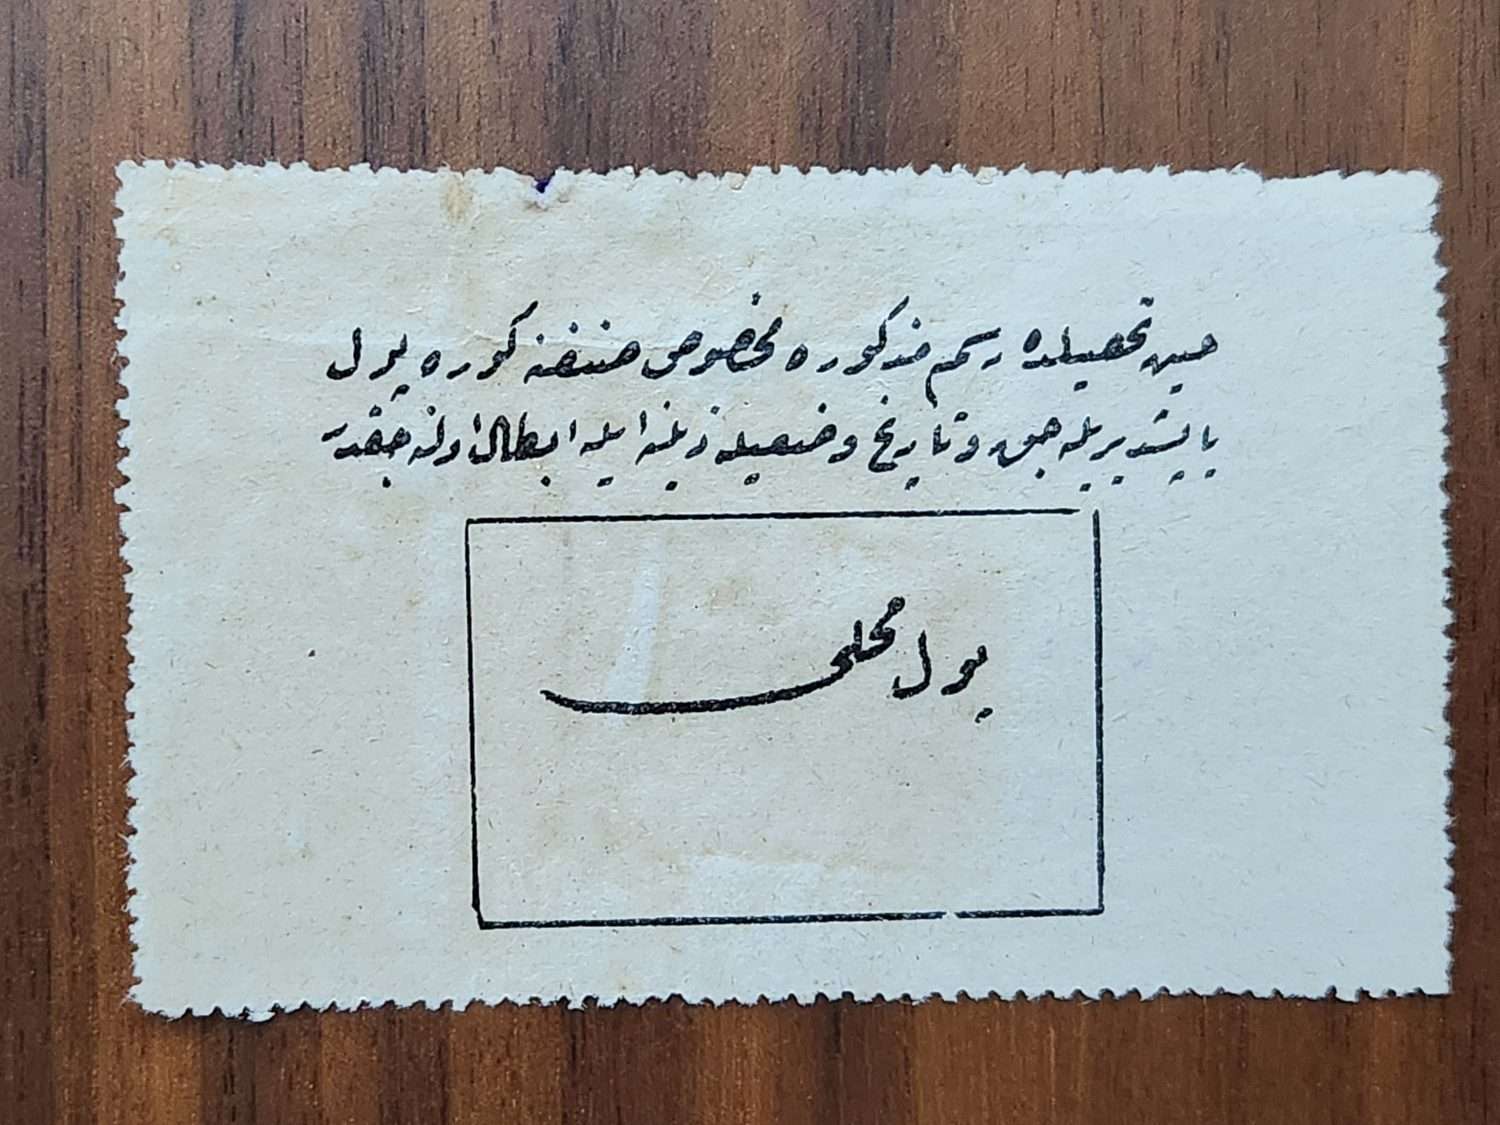 حين تحصيلده رسم مذكوره مخصوص صنفنه كوره پول
ياپيشديريله جق و تاريخ وضعيله زيلنه ايله ابطال اولنه جقدر
پول محلى